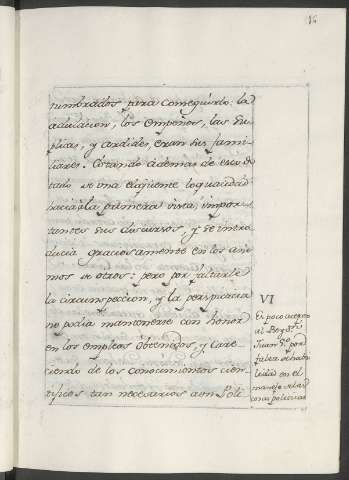 numbrados para conseguirlo: la
adulacion, los empeños, las su
plicas, y ardides, eran sus fami
liares. Estando ademas de esto do
tado de una eloquente loquacidad
hacia à la primera vista impor
tantes sus discursos, y se intro
ducia graciosamente en los ani
mos de otros: pero por faltarle
la circunspeccion, y la perspicacia
no podia mantenerse con honor
en los empleos obtenidos, y care
ciendo de los conocimientos cien
tificos tan necesarios a un Poli
VI
Es poco
al Rey
por
falta de habi
lidad en el
manejo de las
cosas politicas